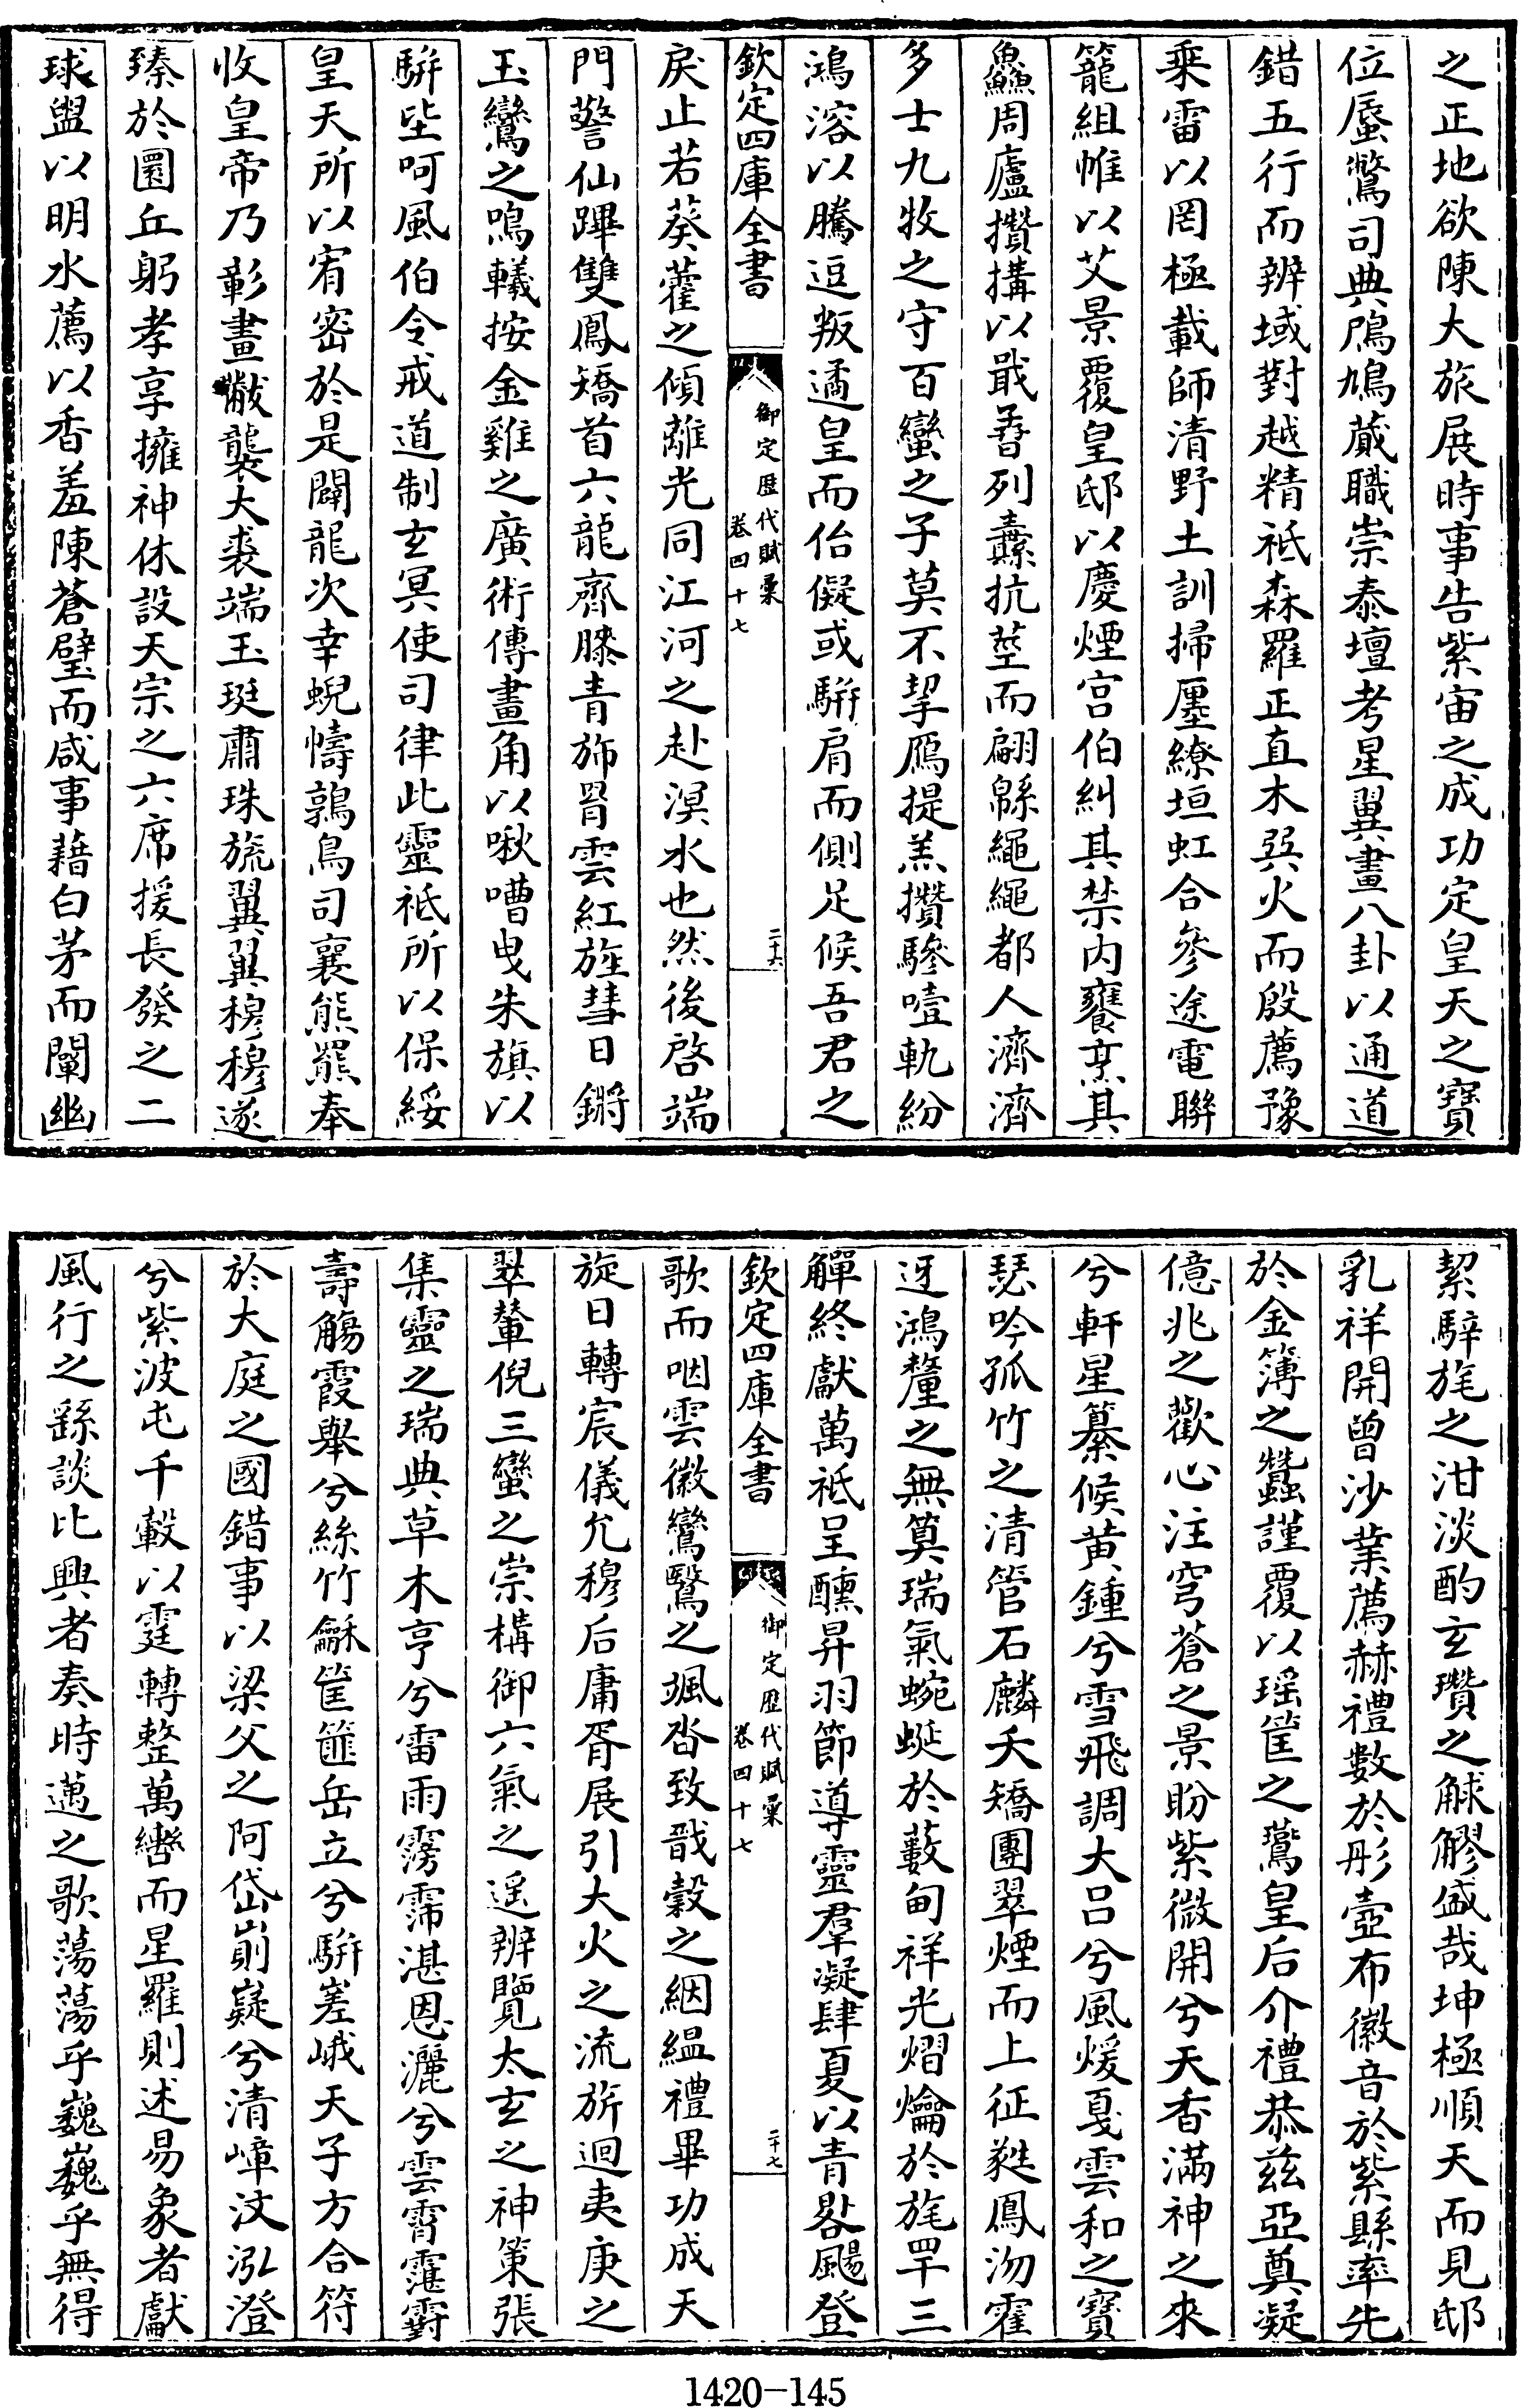 之正地欲陳大旅展時事告紫宙之成功定皇天之寶
位蜃驚司典鳲鳩蕆職崇泰壇考星翼畫八卦以通道
錯五行而辨域對越精祗森羅正直木兵火而殷薦豫
乘雷以罔極載師清野土訓掃㕓繚垣虹合參途電聯
籠組帷以艾景覆皇邸以慶煙宫伯糾其禁内饔烹其
鱻周廬攢搆以戢孴列纛抗莖而翩緜繩繩都人濟濟
多士九牧之守百蠻之子莫不挈鴈提羔攢驂噎軌紛
鴻溶以騰逗叛遹皇而佁儗或駢肩而側足候吾君之
欽定四庫全書
御定歴代賦彙
卷四十七
二十六
戾止若葵藿之傾離光同江河之赴溟水也然後啓端
門警仙蹕雙鳳矯首六龍齊膝青斾罥雲紅旌彗日鏘
玉鸞之鳴轙按金雞之廣術傳畫角以啾嘈曳朱旗以
駢坒呵風伯令戒道制玄冥使司律此靈祗所以保綏
皇天所以宥密於是闢龍次幸蜺幬鶉鳥司襄熊羆奉
收皇帝乃彰畫黻襲大裘端玉珽肅珠旒翼翼穆穆遂
臻於圜丘躬孝享擁神休設天宗之六席援長發之二
球盥以明水薦以香羞陳蒼璧而咸事藉白茅而闡幽
絜騂旄之泔淡酌玄瓚之觩觺盛哉坤極順天而見邸
乳祥開曾沙業薦赫禮數於彤壺布徽音於紫縣率先
於金簿之蠶謹覆以瑶筐之鷰皇后介禮恭兹亞奠凝
億兆之歡心注穹蒼之景盼紫微開兮天香滿神之來
兮軒星纂候黄鍾兮雪飛調大吕兮風煖戛雲和之寶
瑟吟孤竹之清管石麟夭矯團翠煙而上征蕤鳳沕霍
迓鴻釐之無筭瑞氣蜿蜒於藪甸祥光熠爚於旄罕三
觶終獻萬祗呈醺昇羽節導靈羣凝肆夏以青畧颺登
欽定四庫全書
御定歴代賦彙
卷四十七
二十七
歌而咽雲徽鸞鷖之颯沓致戩榖之絪緼禮畢功成天
旋日轉宸儀允穆后庸胥展引大火之流旂迴夷庚之
翠輦倪三蠻之崇構御六氣之遥辨覽太玄之神策張
集靈之瑞典草木亨兮雷雨霶霈湛恩灑兮雲霄霮䨴
壽觴霞舉兮絲竹龢筐篚岳立兮駢嵳峨天子方合符
於大庭之國錯事以梁父之阿岱崱嶷兮清嶂汶泓澄
兮紫波屯千轂以霆轉整萬轡而星羅則述易象者獻
風行之繇談比興者奏時邁之歌蕩蕩乎巍巍乎無得
1420-145